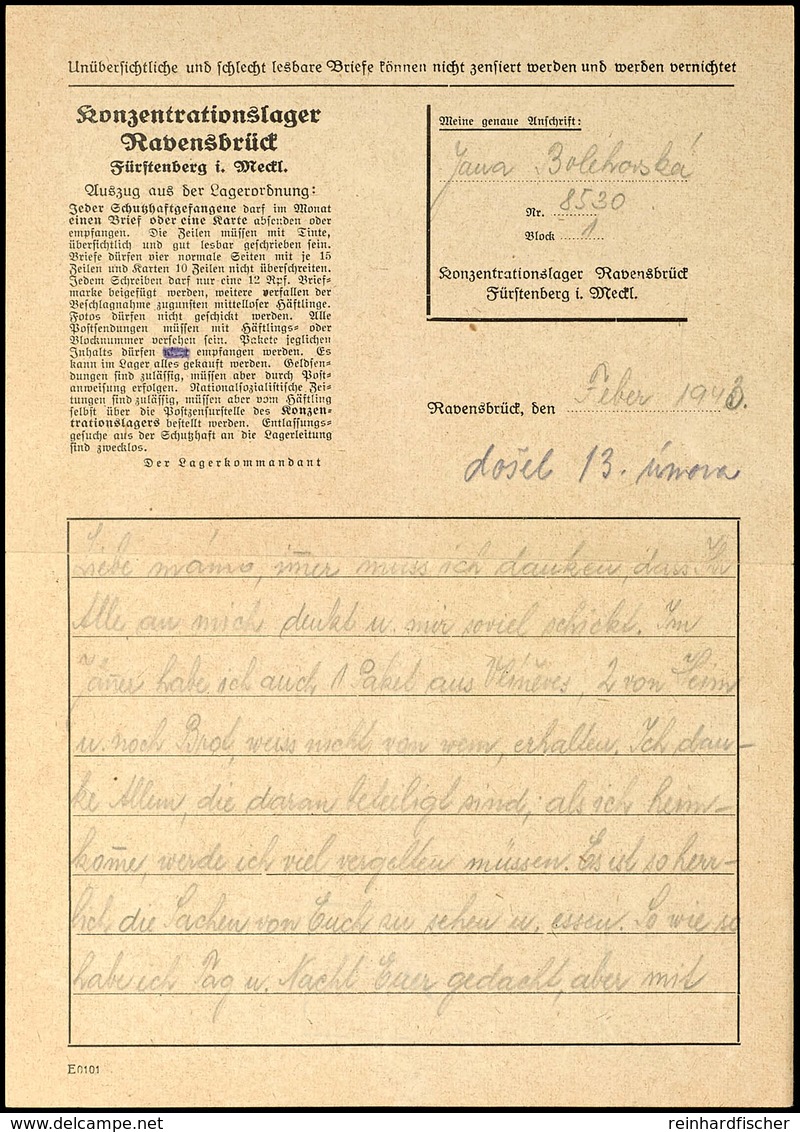 Unübersichtliche und schlecht lesbare Briefe können nicht zensiert werden und werden vernichtet
Konzentrationslager
Ravensbrück
Fürstenberg i. Meckl.
Auszug aus der Lagerordnung:
Jeder Schutzhaftgefangene darf im Monat
einen Brief oder eine Karte absenden oder
empfangen. Die Zeilen müssen mit Tinte,
übersichtlich und gut lesbar geschrieben sein.
Briefe dürfen vier normale Seiten mit je 15
Zeilen und Karten 10 Zeilen nicht überschreiten.
Jedem Schreiben darf nur eine 12 Rpf. Brief-
marke beigefügt werden, weitere verfallen der
Beschlagnahme zugunsten mittelloser Häftlinge.
Fotos dürfen nicht geschickt werden. Alle
Postsendungen müssen mit Häftlings- oder
Blocknummer versehen sein. Pakete jeglichen
Inhalts dürfen empfangen werden. Es
kann im Lager alles gekauft werden. Geldsen-
dungen sind zulässig, müssen aber durch Post-
anweisung erfolgen. Nationalsozialistische Zei-
tungen sind zulässig, müssen aber vom Häftling
selbst über die Postzensurstelle des Konzen-
trationslagers bestellt werden. Entlassungs-
gesuche aus der Schutzhaft an die Lagerleitung
sind zwecklos.
Der Lagerkommandant
Meine genaue Anschrift:
Jana Bolehovská
Nr. 8530
Block 1
Konzentrationslager Ravensbrück
Fürstenberg i. Meckl.
Ravensbrück, den Feber 1943.
došel 13. února
Liebe mámo, im̅er muss ich danken, dass Ihr
Alle an mich denkt u. mir soviel schickt. Im
Jäner habe ich auch 1 Paket aus 2 von Heim
u. noch Brot, weiss nicht von wem, erhalten. Ich dan-
ke Allen, die daran beteiligt sind; als ich heim-
kom̅e, werde ich viel vergelten müssen. Es ist so herr-
lich die Sachen von Euch zu sehen u. essen. So wie so
habe ich Tag u. Nacht Euer gedacht, aber mit
E0101
reinhardfischer